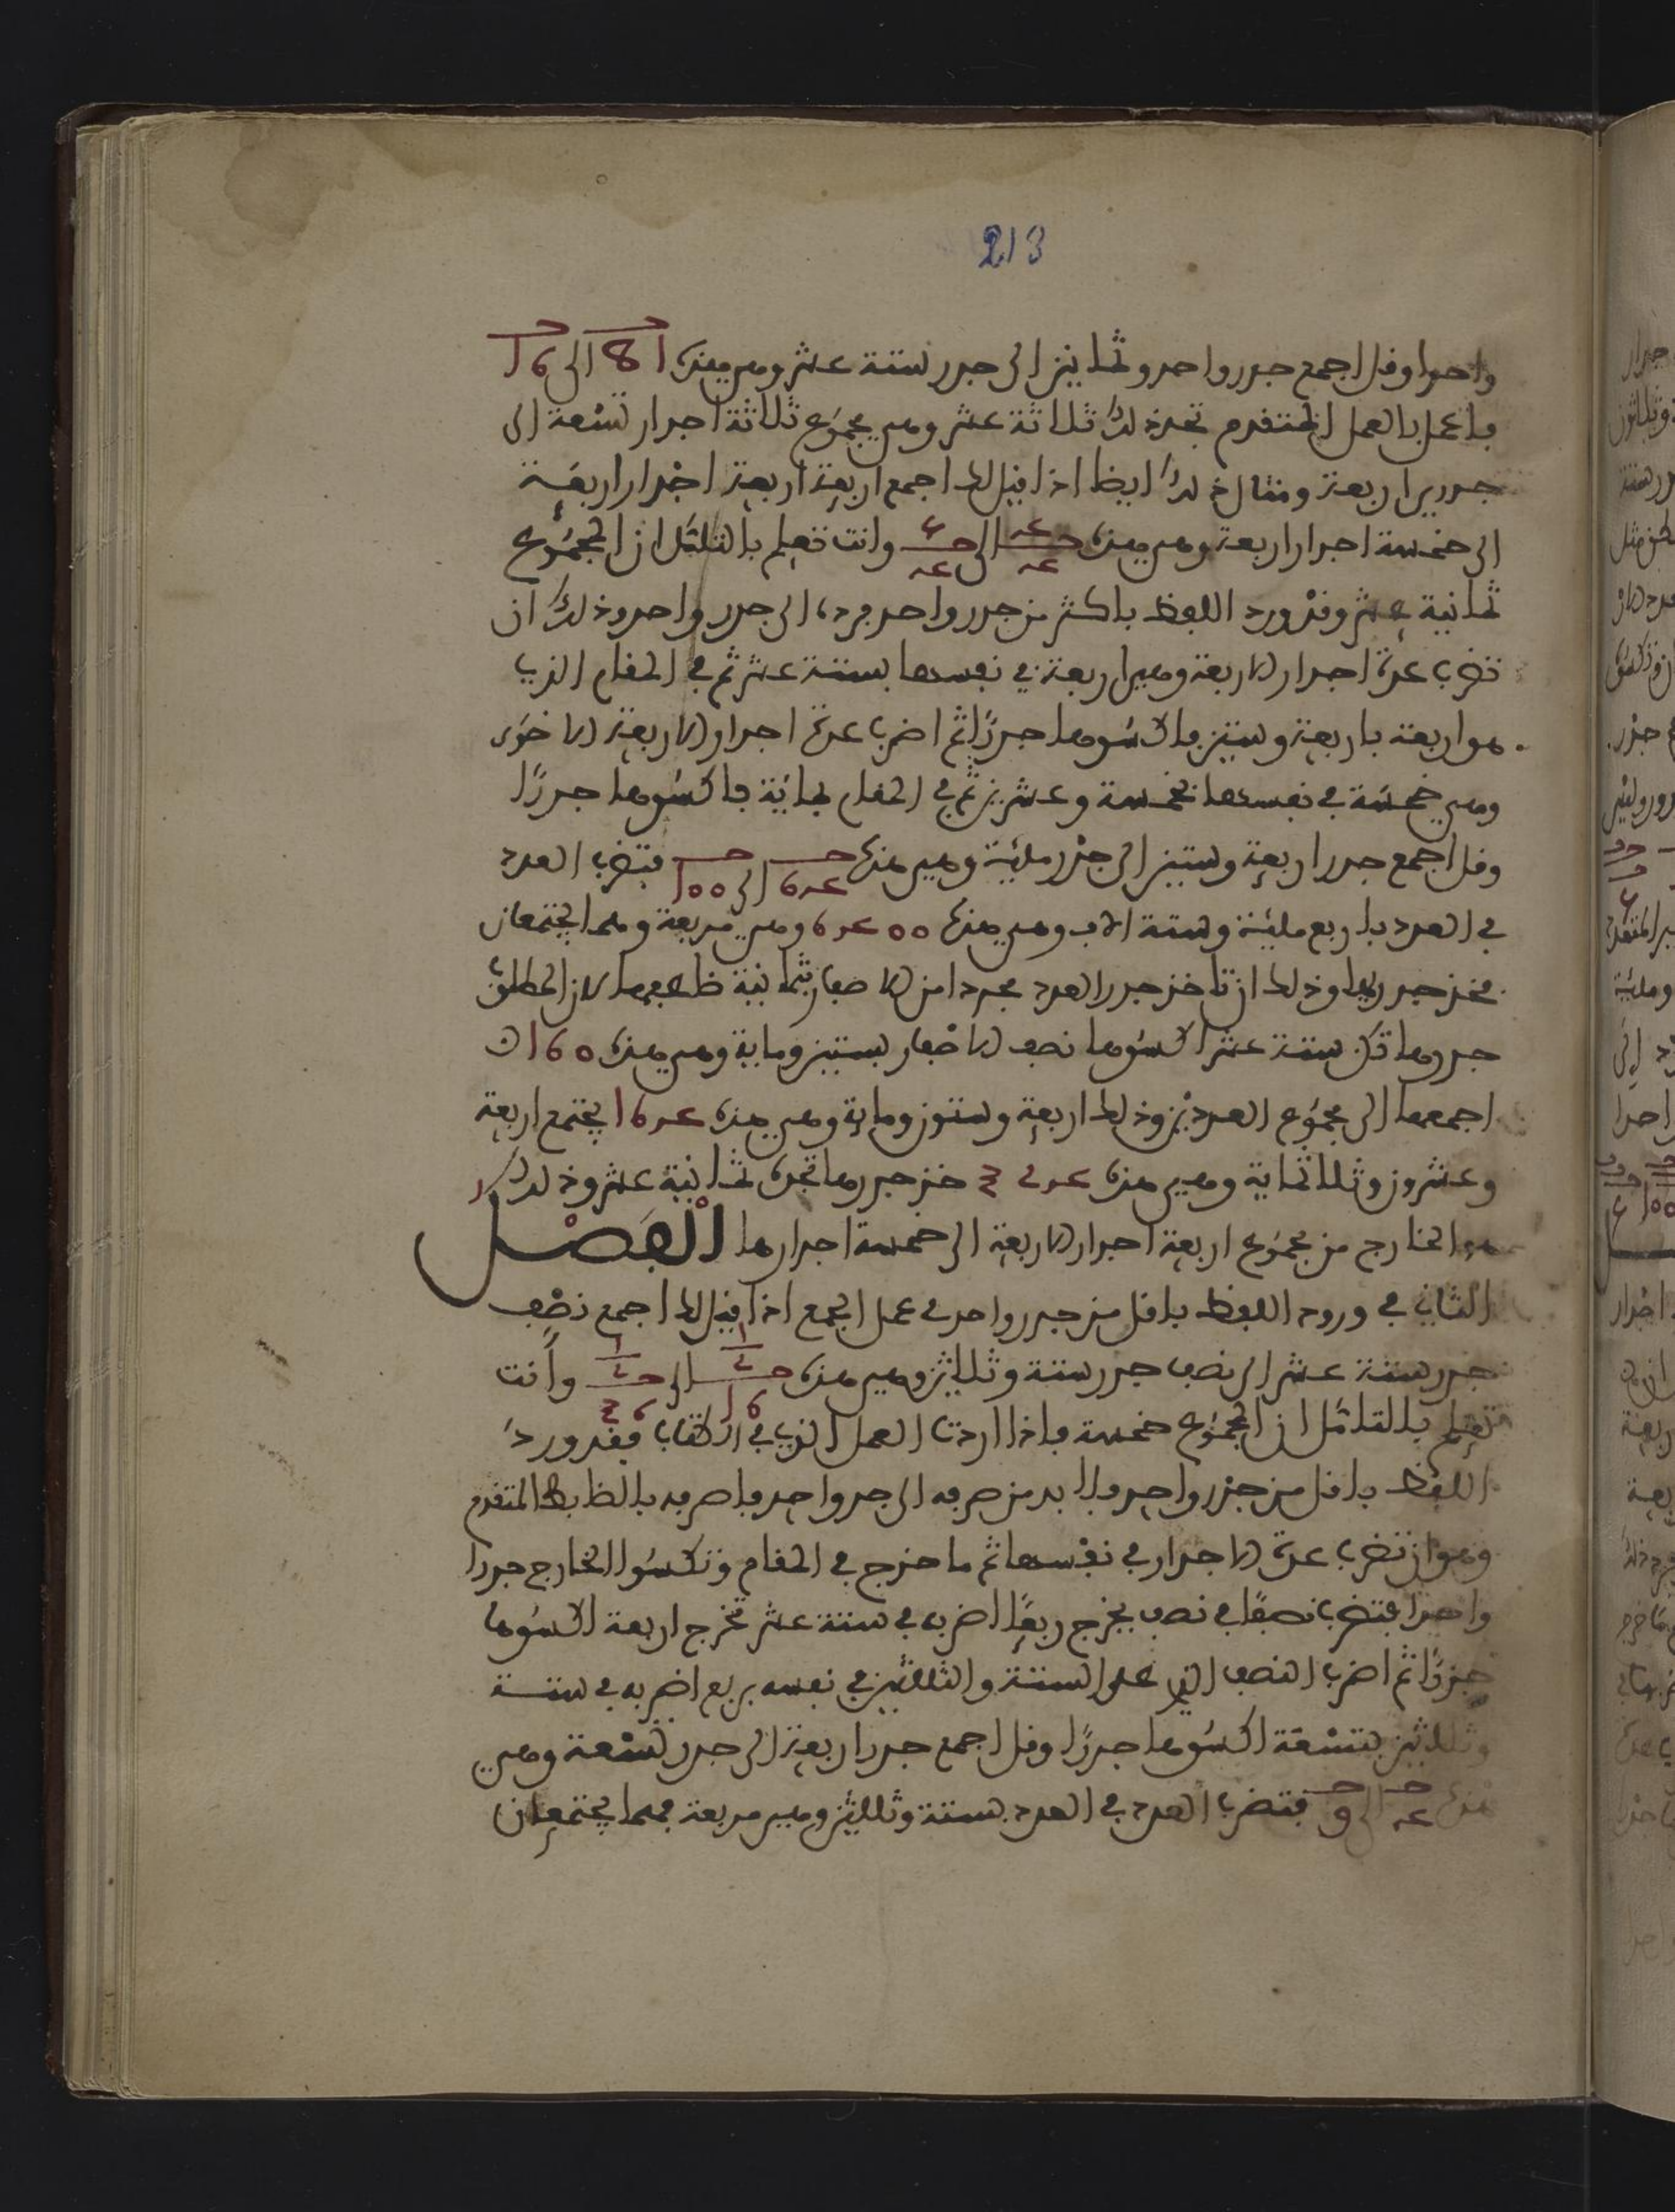 213
واحدا وقل اجمع جدر واحد وثمانين الى جدر ستة عشر وهي هذه 81 الى 16
فاعمل بالعمل المتقدم تجد ذلك ثلاثة عشر وهي مجموع ثلاثة اجدار تسعة الى
جدري اربعة ومثال ذلك ايضا اذا قيل لك اجمع اربعة اربعة اجدار اربعة
الى خمسة اجدار اربعة وهي هذه الى وانت تعلم بالتأمل ان المجموع
ثمانية عشر وقد ورد اللفظ باكثر من جدر واحد فرده الى جدر واحد وذلك ان
تضرب عدة اجدار الاربعة وهي اربعة في نفسها بستة عشر ثم في المقام الذي
هو اربعة باربعة وستين فاكسوها جدرًا ثم اضرب عدة اجدار الاربعة الاخرى
وهي خمسة في نفسها بخمسة وعشرين ثم في المقام بمائة فاكسوها جدرًا
وقل اجمع جدر اربعة وستين الى جدر مائة وهي هذه 64 الى 100 فتضرب العدد
في العدد باربع مائة وستة الاف وهي هذه 6400 وهي مربعة فهما يجتمعان
فخذ جدريها وذلك ان تاخذ جدر العدد مجردا من الاصفار بثمانية ضاعفها لان المطلق
جدرها تكن ستة عشر اكسوها نصف الاصفار بستين وماية وهي هذه 160
اجمعها الى مجموع العددين وذلك اربعة وستون وماية وهي هذه 164 يجتمع اربعة
وعشرون وثلاثماية وهي هذه 324 خذ جدرها تجده ثمانية عشر وذلك
هو الخارج من مجموع اربعة اجدار الاربعة الى خمسة اجدارها الْفَصْل
الثاني في ورود اللفظ باقل من جدر واحد في عمل الجمع اذا قيل لك اجمع نصف
جدر ستة عشر الى نصف جدر ستة وثلاثين وهي هذه 16 الى 36 وأنت
تعلم بالتأمل ان المجموع خمسة فاذا اردت العمل الذي في الكتاب فقد ورد
اللفظ باقل من جدر واحد فلا بد من صرفه الى جدر واحد فاصرفه بالضابط المتقدم
وهو ان تضرب عدة الاجدار في نفسها ثم ما خرج في المقام وتكسوا الخارج جدرا
واحدا فتضرب نصفًا في نصف يخرج ربعًا اضربه في ستة عشر تخرج اربعة اكسوها
جدرًا ثم اضرب النصف الذي على الستة والثلاثين في نفسه بربع اضربه في ستة
وثلاثين بتسعة اكسوها جدرًا وقل اجمع جدر اربعة الى جدر تسعة وهي
هذه 4 الى 9 فتضرب العدد في العدد بستة وثلاثين وهي مربعة فهما يجتمعان